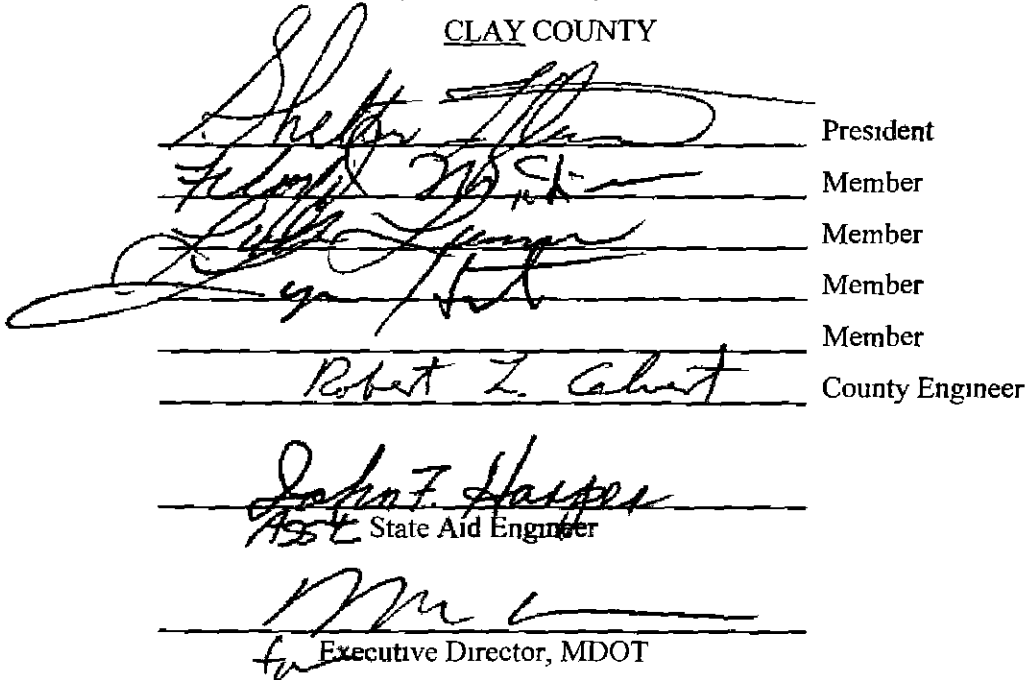 CLAY COUNTY
Shelton President
Floyd Member
Luke Member
Member
Member
Robert L. Calvert County Engineer
John F. Harper
Asst State Aid Engineer
for Executive Director, MDOT